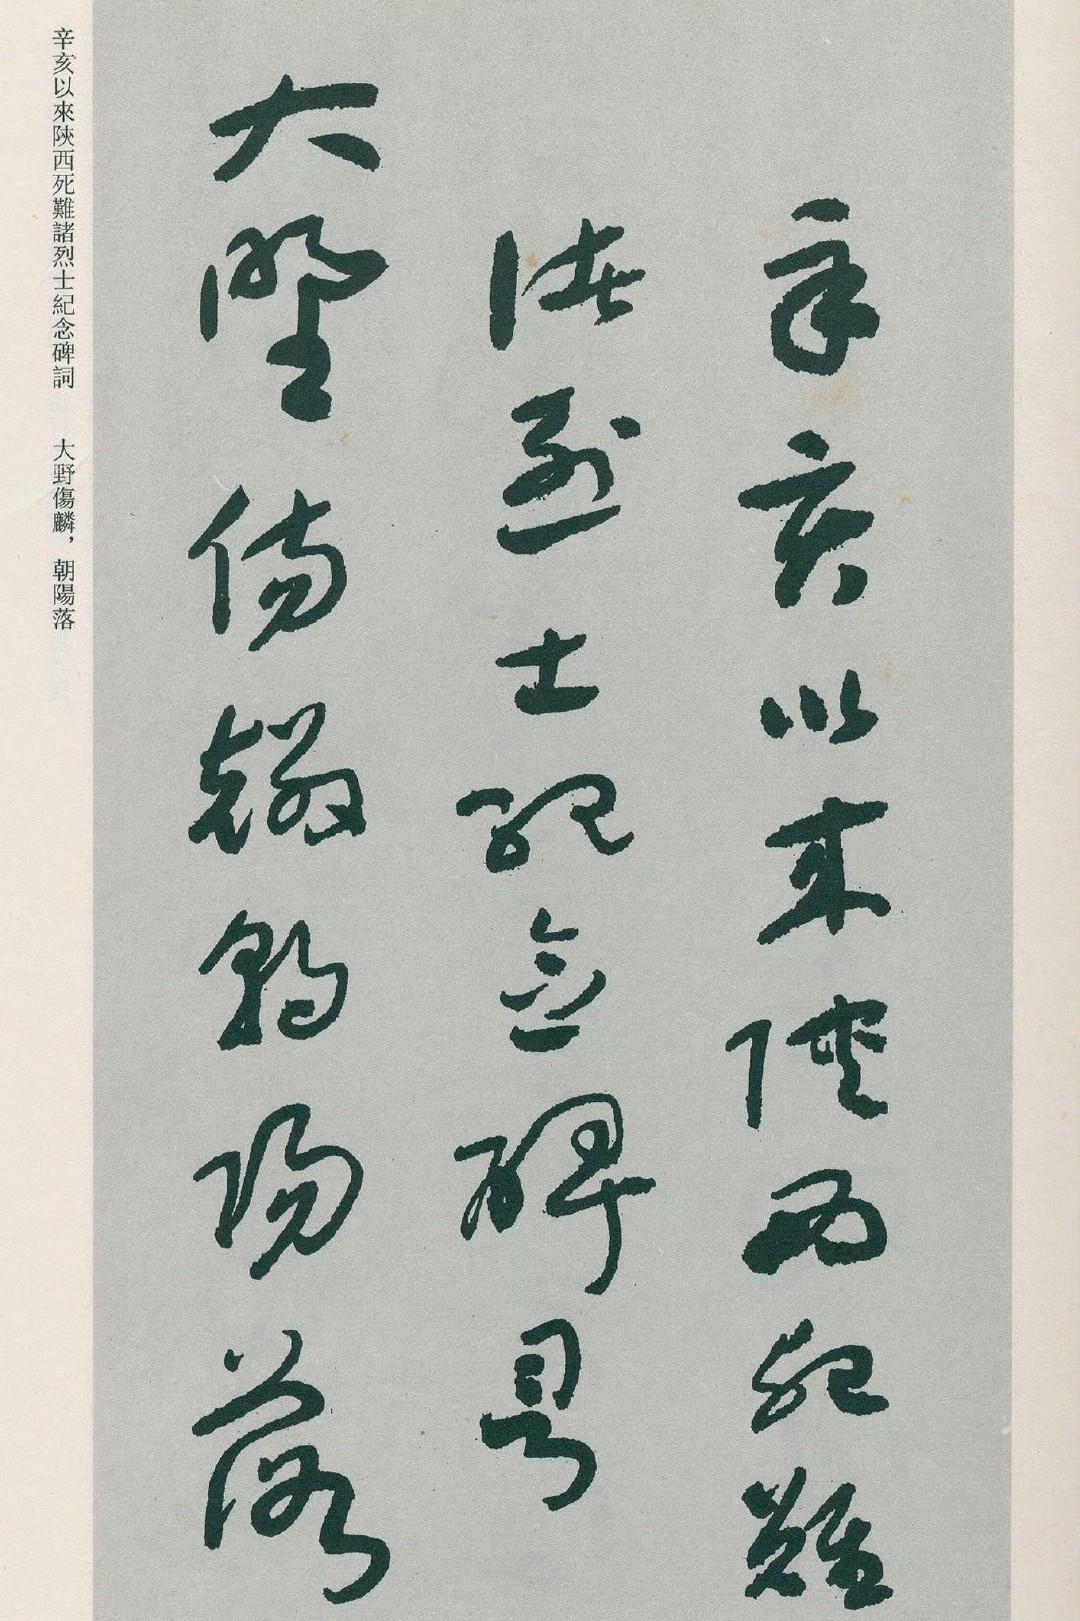 辛亥以來陝西死難
諸烈士紀念碑詞
大野傷麟朝陽落
辛亥以來陝西死難諸烈士紀念碑詞　大野傷麟，朝陽落